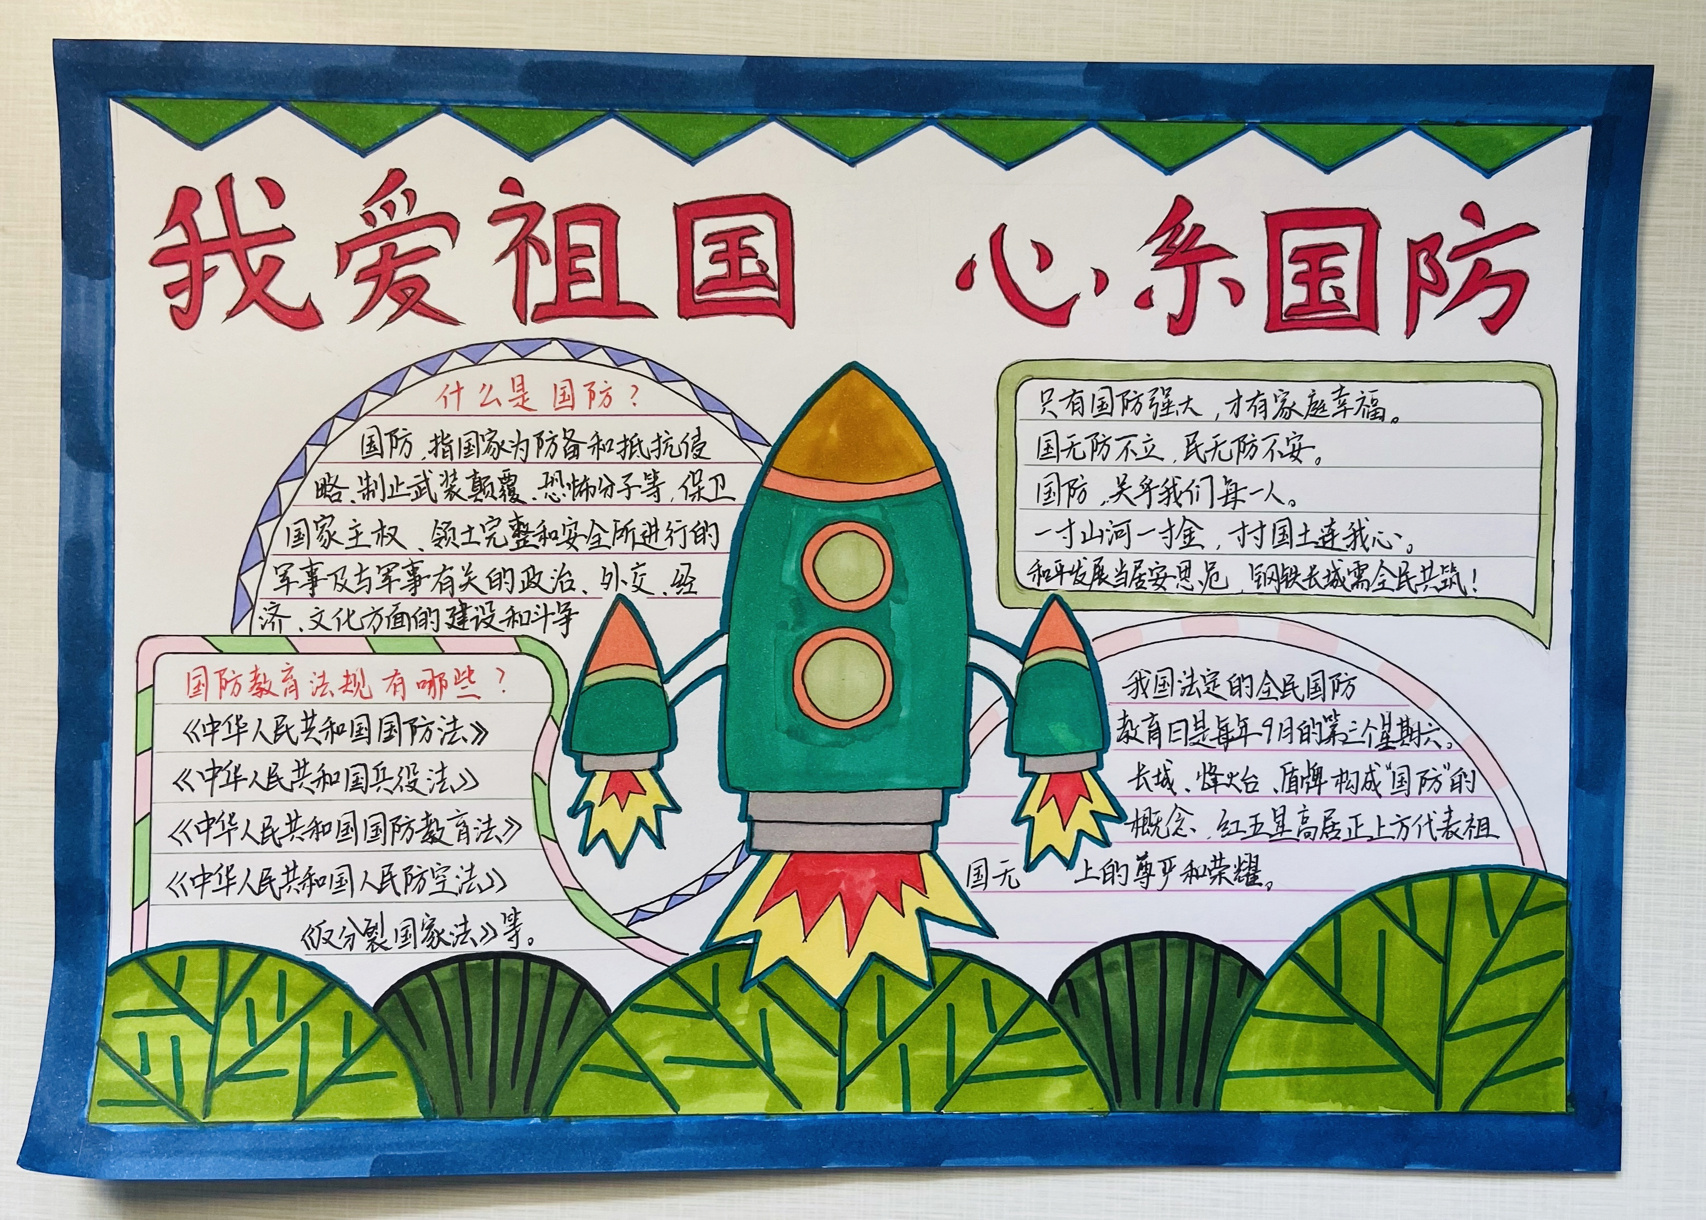 我爱祖国 心系国防
什么是国防？
国防，指国家为防备和抵抗侵
略、制止武装颠覆、恐怖分子等，保卫
国家主权、领土完整和安全所进行的
军事及与军事有关的政治、外交、经
济、文化方面的建设和斗争
国防教育法规有哪些？
《中华人民共和国国防法》
《中华人民共和国兵役法》
《中华人民共和国国防教育法》
《中华人民共和国人民防空法》
《反分裂国家法》等。
只有国防强大，才有家庭幸福。
国无防不立，民无防不安。
国防，关乎我们每一人。
一寸山河一寸金，寸寸国土连我心。
和平发展当居安思危，钢铁长城需全民共筑！
我国法定的全民国防
教育日是每年9月的第三个星期六。
长城、烽火台、盾牌构成“国防”的
概念、红五星高居正上方代表祖
国无上的尊严和荣耀。